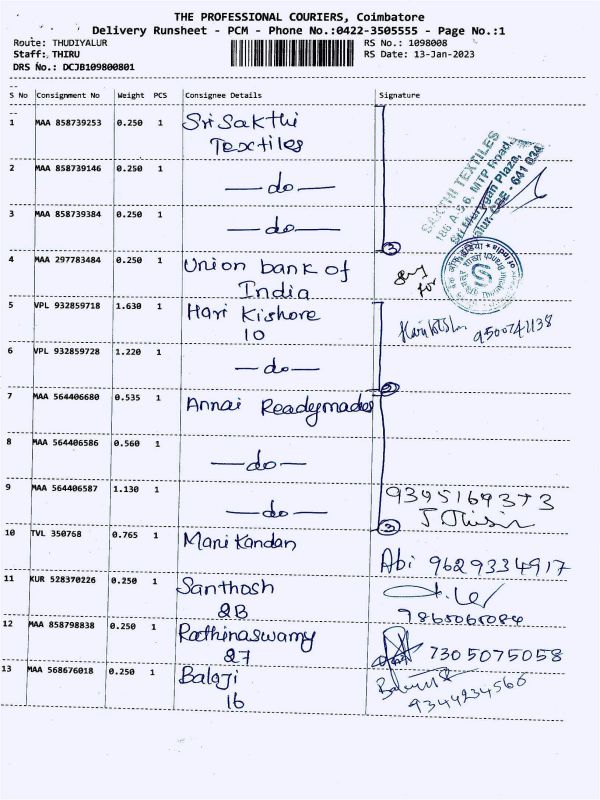 THE PROFESSIONAL COURIERS, Coimbatore
Delivery Runsheet - PCM - Phone No.:0422-3505555 - Page No.:1
Route: THUDIYALUR RS No.: 1098008
Staff: THIRU RS Date: 13-Jan-2023
DRS No.: DCJB109800801
S No Consignment No Weight PCS Consignee Details Signature
1 MAA 858739253 0.250 1 Sri Sakthi
Textiles
2 MAA 858739146 0.250 1 —do—
3 MAA 858739384 0.250 1 —do—
3
SAKTHI TEXTILES
186 A, 5,6, MTP Road,
Sri Murugan Plaza,
CBE - 641 034
4 MAA 297783484 0.250 1 Union bank of
India
for
5 VPL 932859718 1.630 1 Hari Kishore
10
6 VPL 932859728 1.220 1 —do—
2
7 MAA 564406680 0.535 1 Annai Readymades
8 MAA 564406586 0.560 1 —do—
9 MAA 564406587 1.130 1 —do—
3
10 TVL 350768 0.765 1 Manikandan
Abi 9629334917
11 KUR 528370226 0.250 1 Santhosh
2B
7865065084
12 MAA 858798838 0.250 1 Rathinaswamy
27
7305075058
13 MAA 568676018 0.250 1 Balaji
16
9344234566